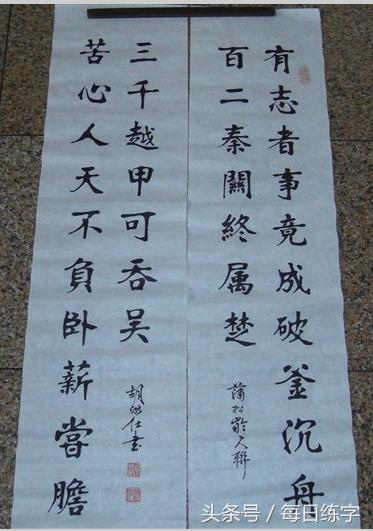 有志者事竟成破釜沉舟
百二秦關終属楚
蒲松齡聯
苦心人天不負卧薪嘗膽
三千越甲可吞吴
胡仕書
头条号/每日练字